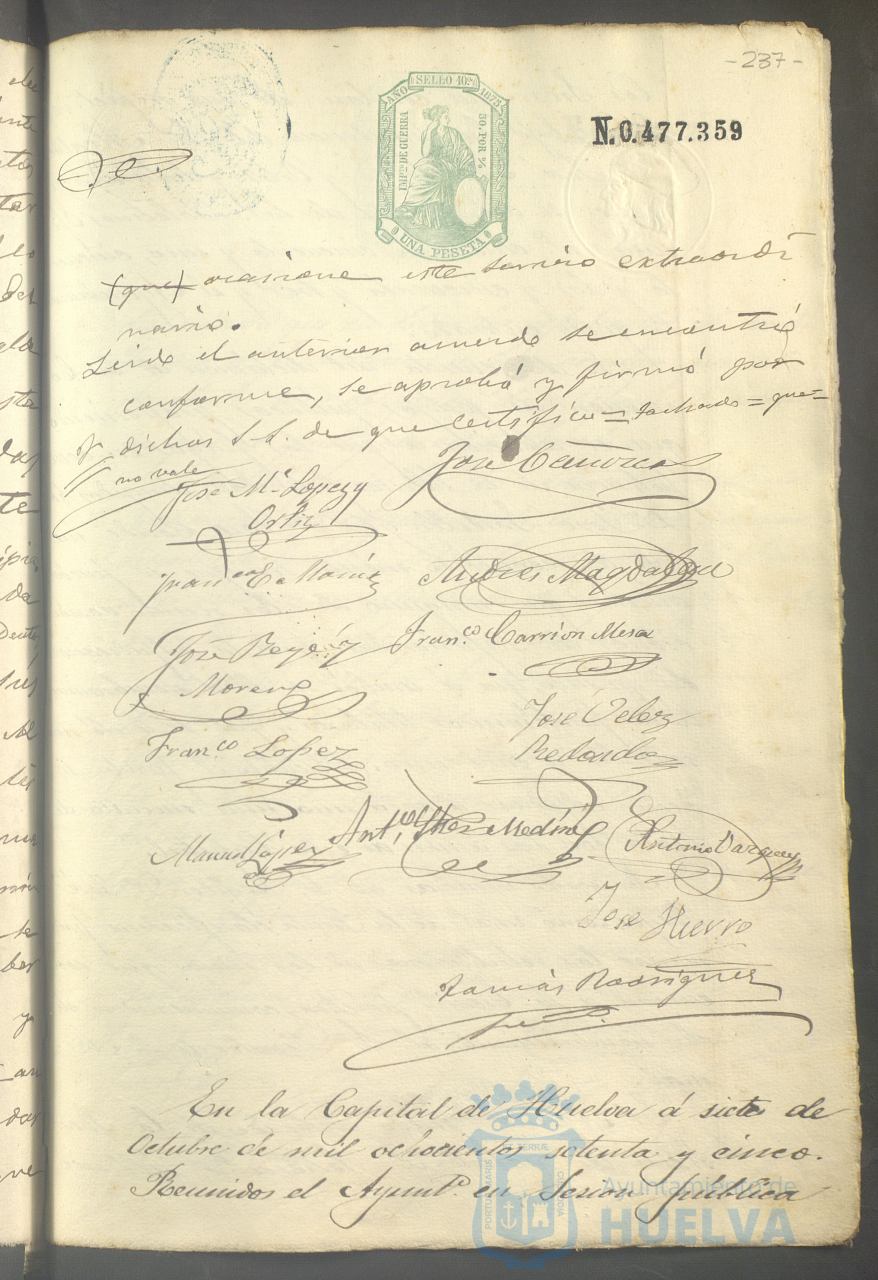 -237-
AÑO SELLO 10º 1875
IMPTO DE GUERRA
50 POR %
UNA PESETA
N.0.477.359
(que) ocasione este servicio extraordi
nario.
Leido el anterior acuerdo se encontró
conforme, se aprobó y firmó por
dichos S.S. de que certifico = tachado = que =
no vale
José Cánovas
José Mª Lopez y
Ortiz
Andres Magdalena
José Reyes y
Moreno
Franco Carrion Mesa
José Velez
Redondo
Franco Lopez
Manuel López
Medina
Antonio Vazquez
José Hierro
Tomás Rodriguez
En la Capital de Huelva á siete de
Octubre de mil ochocientos setenta y cinco.
Reunidos el Ayuntº en Sesion pública
PORTUS MARIS ET TERRAE CUSTODIA
Ayuntamiento de
HUELVA